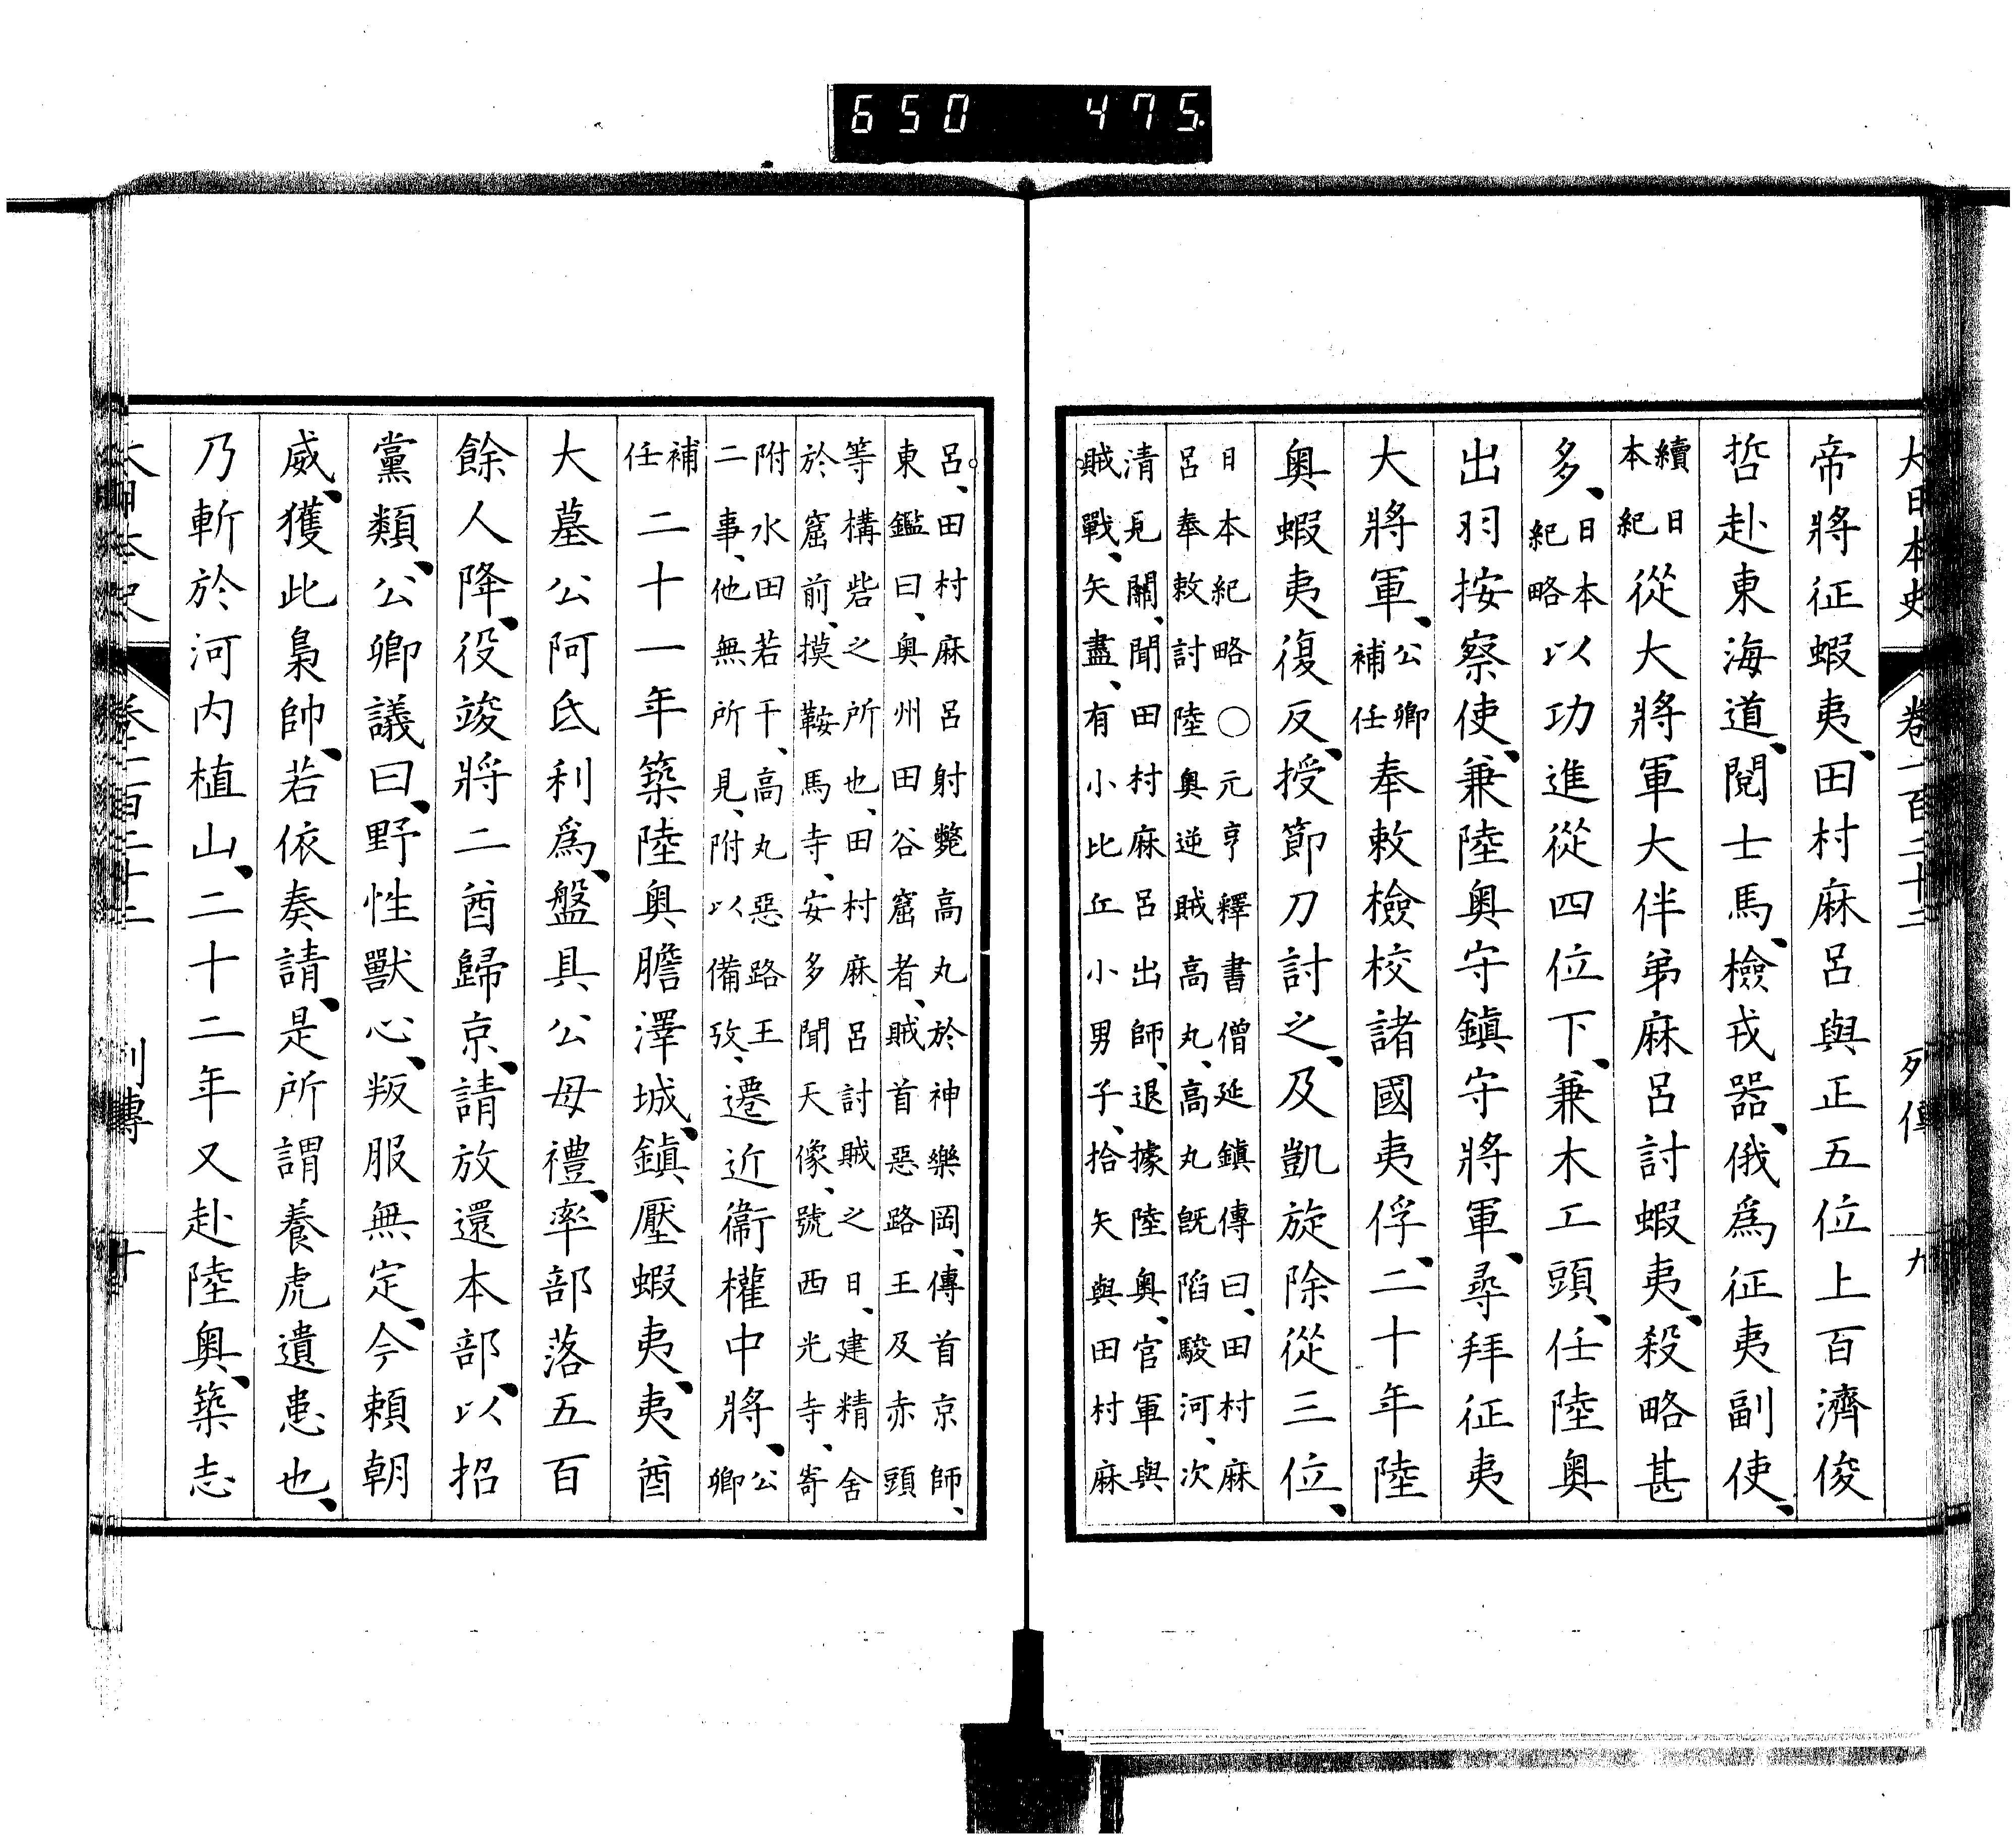 650 475
大日本史 卷一百二十二 列傳 九
帝將征蝦夷、田村麻呂與正五位上百濟俊
哲赴東海道、閱士馬、檢戎器、俄爲征夷副使、
續日本紀從大將軍大伴弟麻呂討蝦夷、殺略甚
多、日本紀略以功進從四位下、兼木工頭、任陸奥
出羽按察使、兼陸奥守鎭守將軍、尋拜征夷
大將軍、公卿補任奉敕檢校諸國夷俘、二十年陸
奥蝦夷復反、授節刀討之、及凱旋除從三位、
日本紀略〇元亨釋書僧延鎭傳曰、田村麻
呂奉敕討陸奥逆賊高丸、高丸既陷駿河、次
清見關、聞田村麻呂出師、退據陸奥、官軍與
賊戰、矢盡、有小比丘小男子、拾矢與田村麻
呂、田村麻呂射斃高丸於神樂岡、傳首京師、
東鑑曰、奥州田谷窟者、賊首惡路王及赤頭
等構砦之所也、田村麻呂討賊之日、建精舍
於窟前、摸鞍馬寺、安多聞天像、號西光寺、寄
附水田若干、高丸惡路王
二事、他無所見、附以備攷、遷近衞權中將、公卿
補任二十一年築陸奥膽澤城、鎭壓蝦夷、夷酋
大墓公阿氐利爲、盤具公母禮、率部落五百
餘人降、役竣將二酋歸京、請放還本部、以招
黨類、公卿議曰、野性獸心、叛服無定、今賴朝
威、獲此梟帥、若依奏請、是所謂養虎遺患也、
乃斬於河内植山、二十二年又赴陸奥、築志
大日本史 卷一百二十二 列傳 十